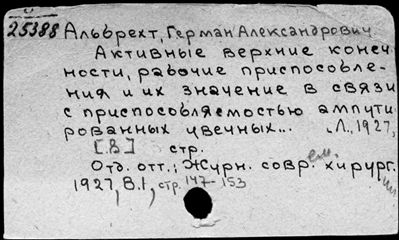 25388 Альбрехт, Герман Александрович.
Активные верхние конеч
ности, рабочие приспособле-
ния и их значение в связи
с приспособляемостью ампути
рованных увечных... Л., 1927,
[8] стр.
Отд. отт.; Журн. совр. хирург.
1927, в.1, стр. 147-153